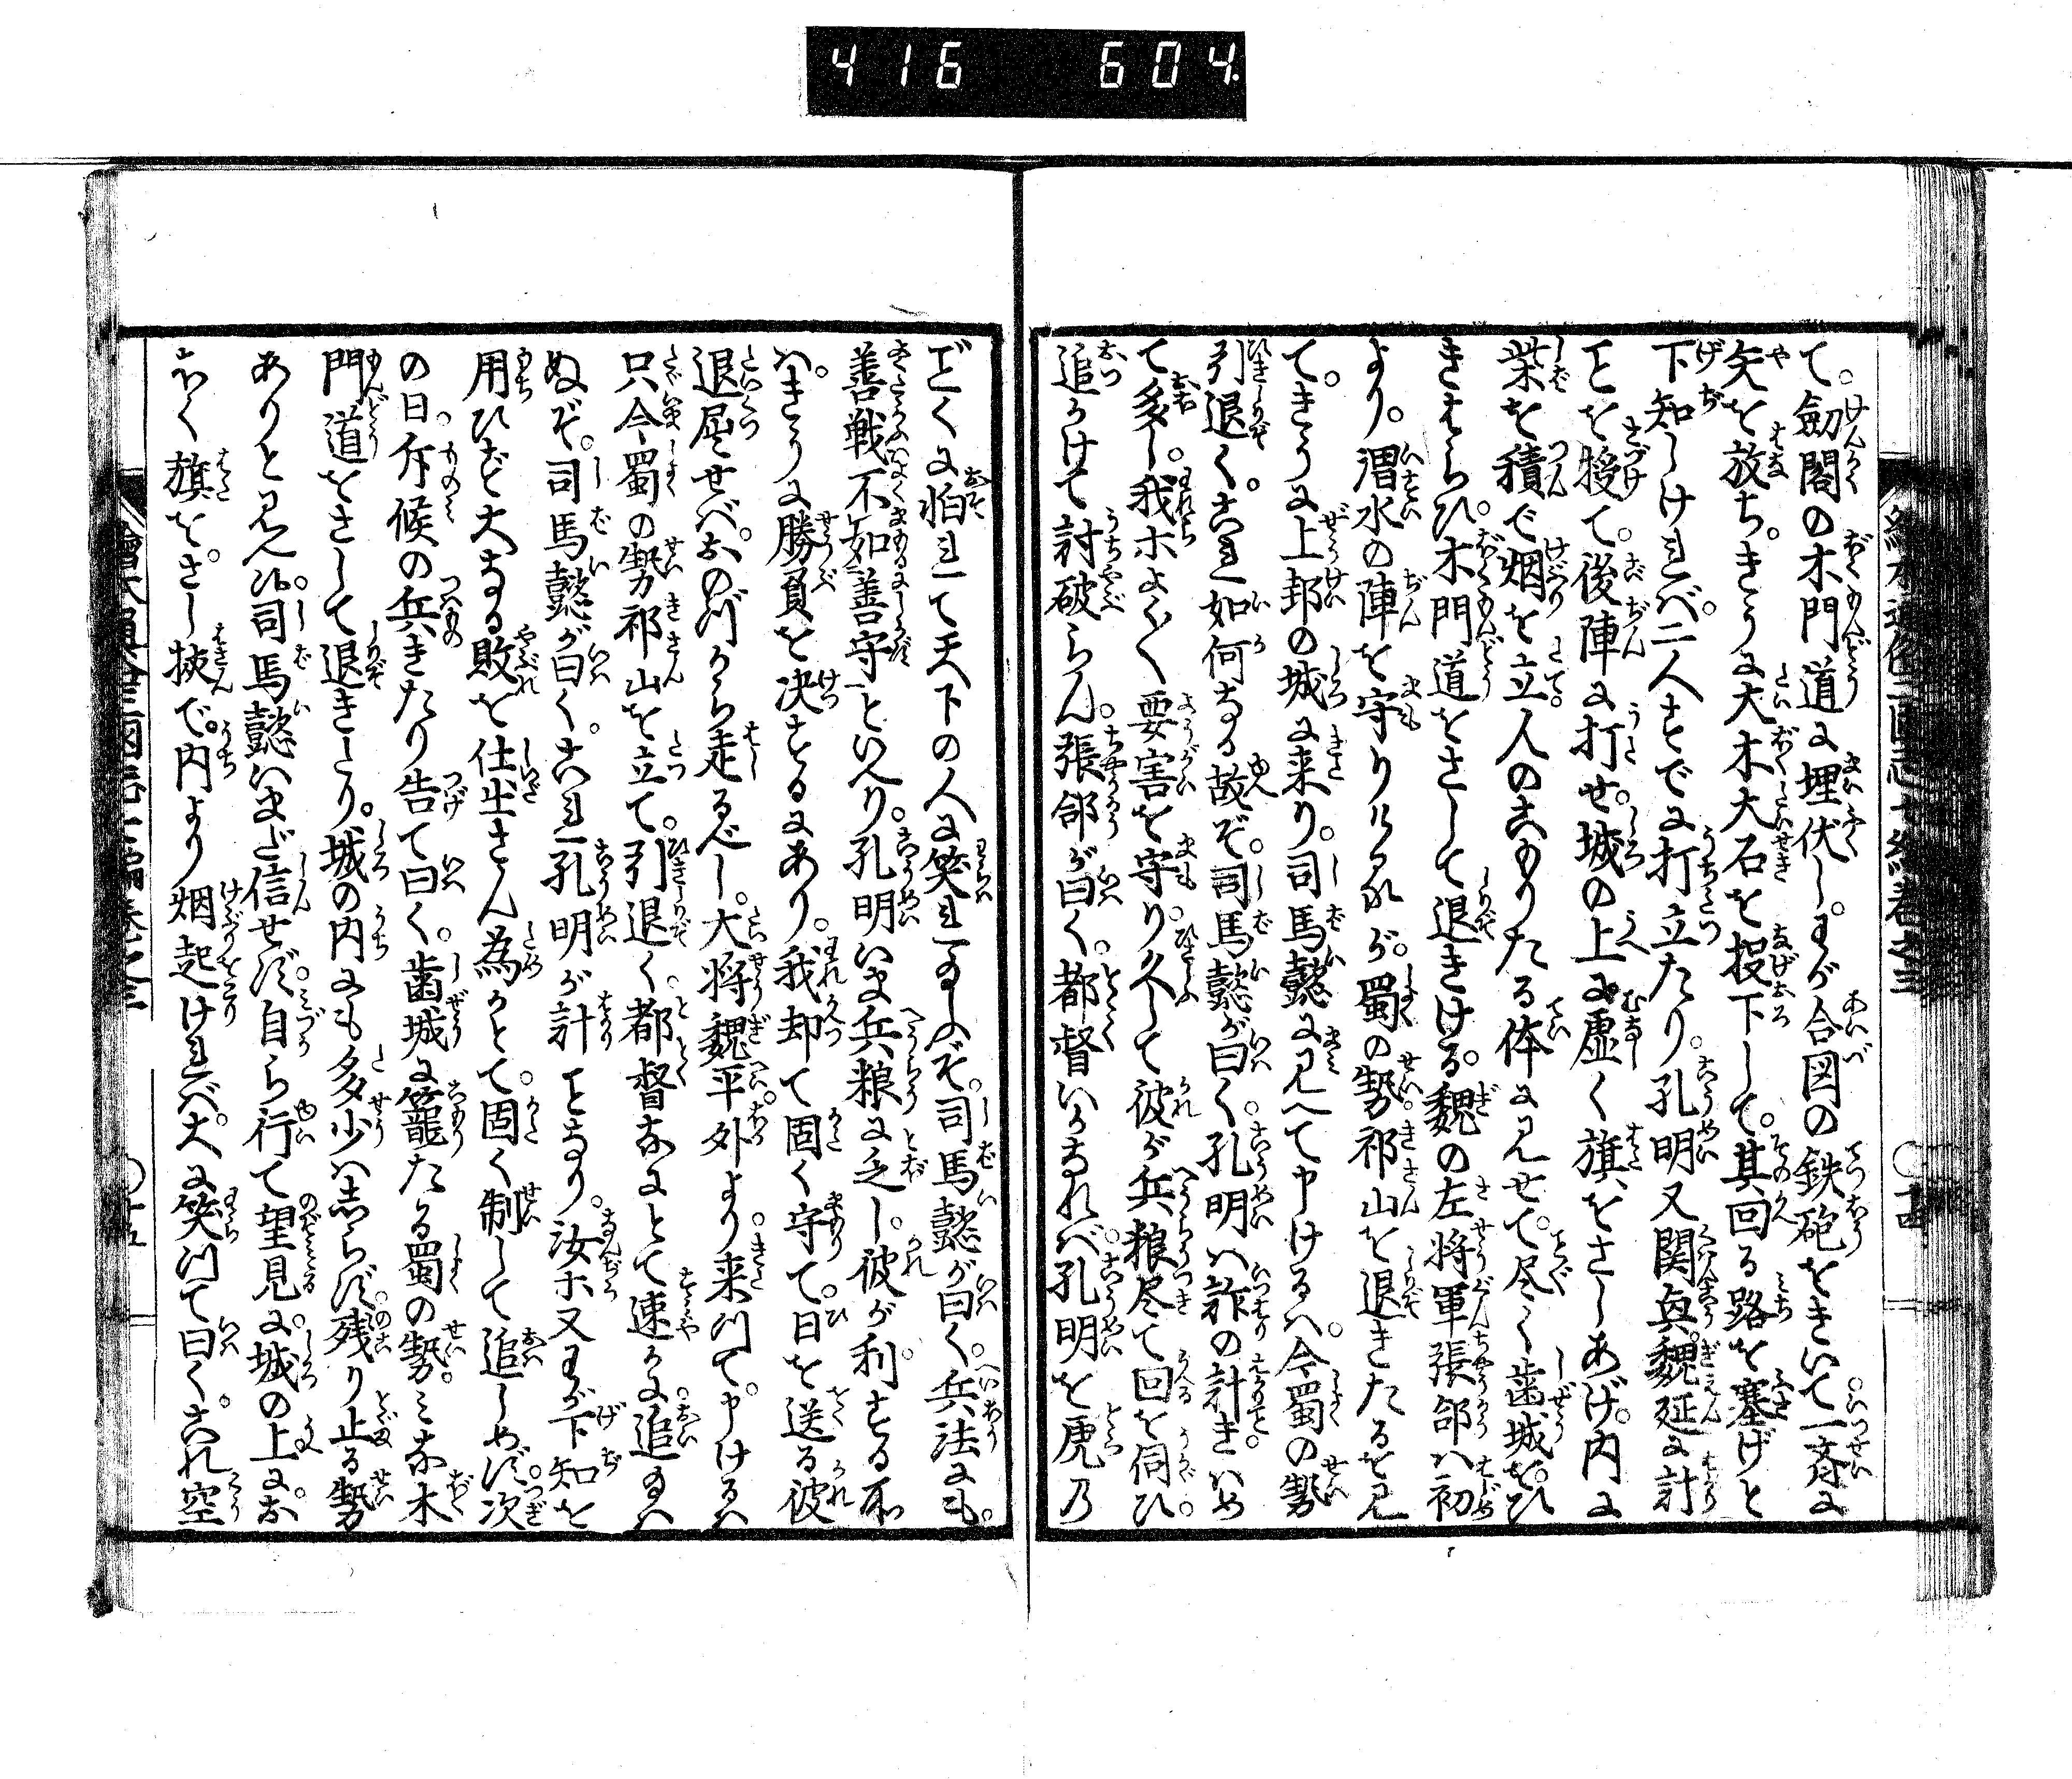 416 604
て。劔閣の木門道に埋伏し。わが合図の鉄砲をきいて一斉に
矢を放ち。きうに大木大石を投下して。其回る路を塞げと
下知しければ。二人すでに打立たり。孔明又関興魏延に計
ことを授て。後陣に打せ。城の上に虚く旗をさしあげ。内に
柴を積で烟を立。人のこもりたる体に見せて。尽く歯城をひ
きはらひ。木門道をさして退きける。魏の左将軍張郃ハ初
より。渭水の陣を守りけるが。蜀の勢祁山を退きたるを見
て。きうに上邽の城に来り。司馬懿に見へて申けるハ。今蜀の勢
引退く。これ如何なる故ぞ。司馬懿が曰く。孔明ハ詐の計きハめ
て多し。我ホよく〳〵要害を守り。久して彼が兵粮尽て回を伺ひ。
追かけて討破らん。張郃が曰く。都督いかなれバ。孔明を虎の
ごとくに怕れて天下の人に笑れ玉ふぞ。司馬懿が曰く。兵法にも。
善戦不如善守といへり。孔明いま兵粮に乏し。彼が利する所
ハ。きうに勝負を决するにあり。我却て固く守て。日を送る彼
退屈せバ。おのづから走るべし。大将魏平外より。来つて。申けるハ
只今蜀の勢祁山を立て。引退く。都督なにとて速かに。追玉ハ
ぬぞ。司馬懿が曰く。これ孔明が計ことなり。汝ホ又わが下知を
用ひず大なる敗を仕出さん為かとて。固く制して追しめず。次
の日。斥候の兵きたり告て曰く。歯城に籠たる蜀の勢。ミな木
門道をさして退きたり。城の内にも多少ハしらず。残り止る勢
ありと見へ候。司馬懿いまだ信せず。自ら行て望見に。城の上に。お
ほく旗を。さし挾で。内より烟起ければ。大に笑つて曰く。これ空